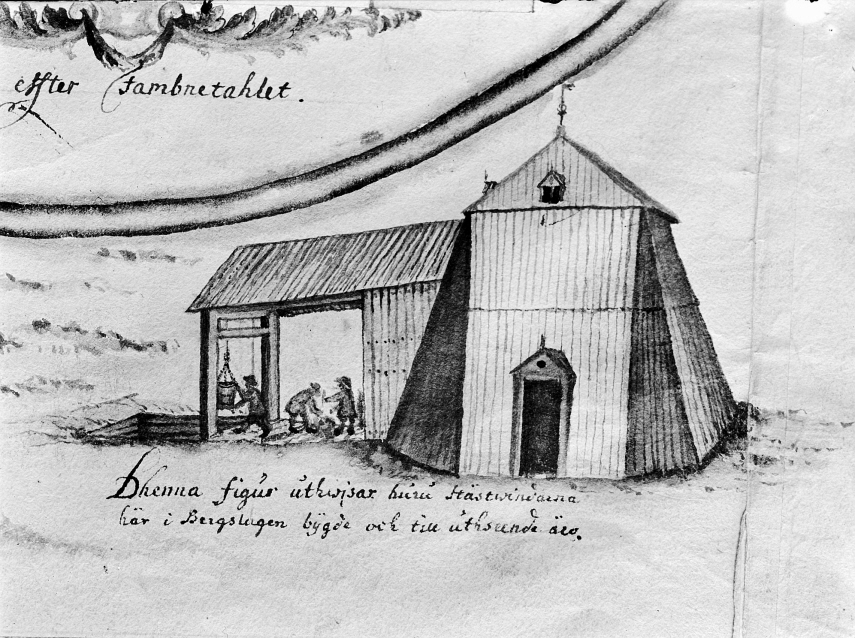 effter Fambnetahlet.
Dhenna figur uthwjsar huru Hästwindarna
här i Bergslagen bÿgde och till uthseende äro.